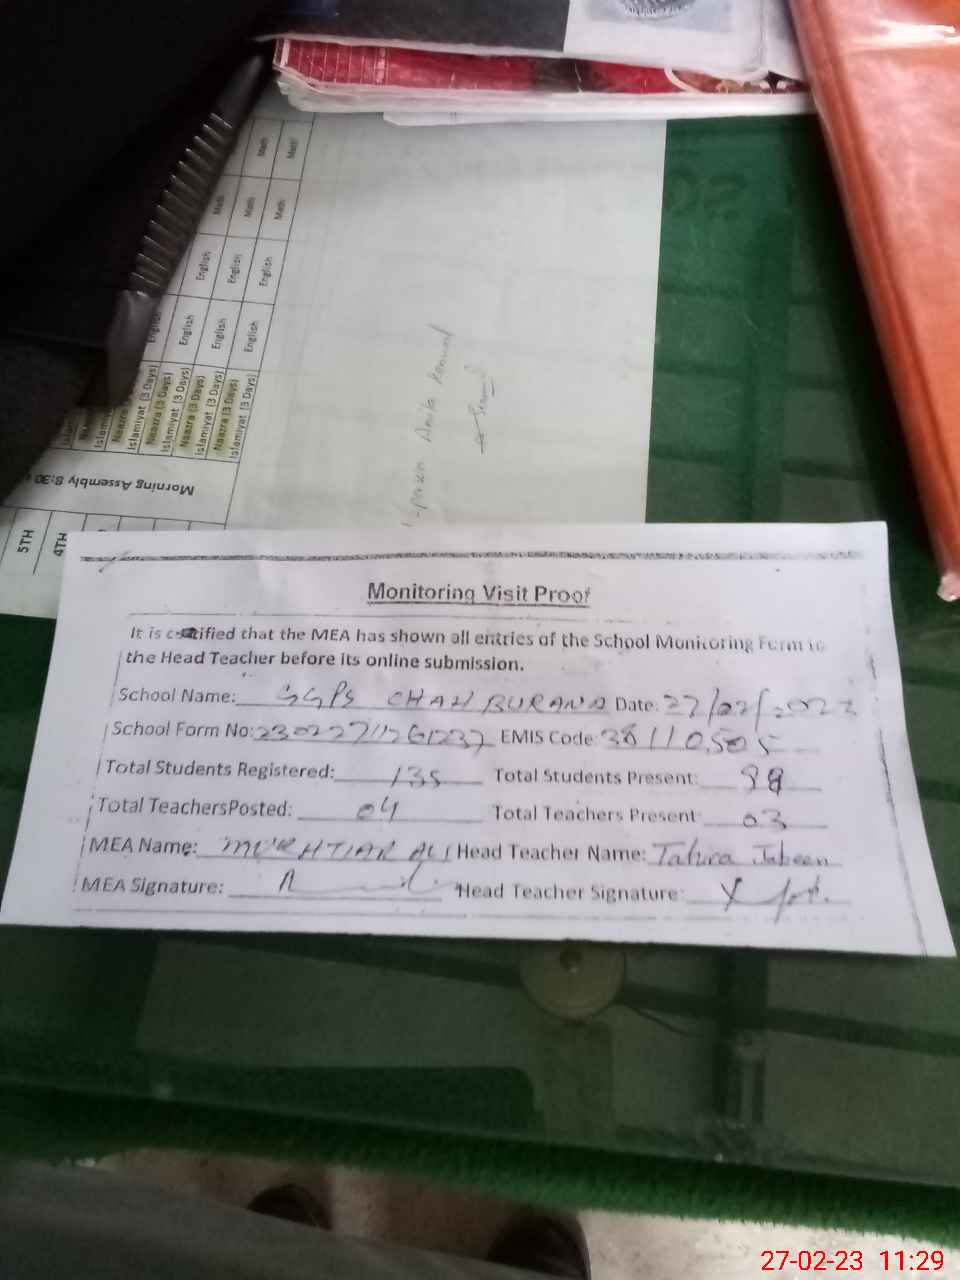 Math
Math
Math
Math
Math
English
English
English
English
English
English
English
Islamiyat (3 Days)
Naazra (3 Days)
Islamiyat (3 Days)
Naazra (3 Days)
Islamiyat (3 Days)
Naazra (3 Days)
Islamiyat (3 Days)
Morning Assembly 8:30
5TH
4TH
Monitoring Visit Proof
It is certified that the MEA has shown all entries of the School Monitoring Form to
the Head Teacher before its online submission.
School Name: GGPS CHAH BURANA Date: 27/02/2023
School Form No: EMIS Code: 38110505
Total Students Registered: 135 Total Students Present:
Total Teachers Posted: 04 Total Teachers Present 03
MEA Name: MUKHTIAR ALI Head Teacher Name: Tahira Jabeen
MEA Signature: Head Teacher Signature:
27-02-23 11:29